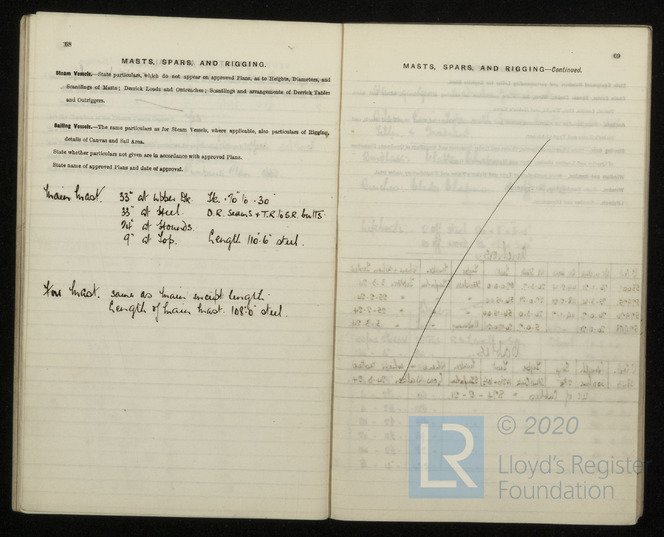 68
MASTS, SPARS, AND RIGGING.
Steam Vessels.—State particulars, which do not appear on approved Plans, as to Heights, Diameters, and
Scantlings of Masts; Derrick Loads and Outreaches; Scantlings and arrangements of Derrick Tables
and Outriggers.
Sailing Vessels.—The same particulars as for Steam Vessels, where applicable, also particulars of Rigging,
details of Canvas and Sail Area.
State whether particulars not given are in accordance with approved Plans.
State name of approved Plans and date of approval.
Main Mast. 33" at Upper Dk. .70 to .30
33" at Heel. D.R. seams & T.R. to S.R. butts
24" at Hounds.
9" at Top. Length 110'-6" steel.
Fore Mast. same as main except length.
Length of main mast. 108'-0" steel.
69
MASTS, SPARS, AND RIGGING—Continued.
LR
© 2020
Lloyd's Register
Foundation